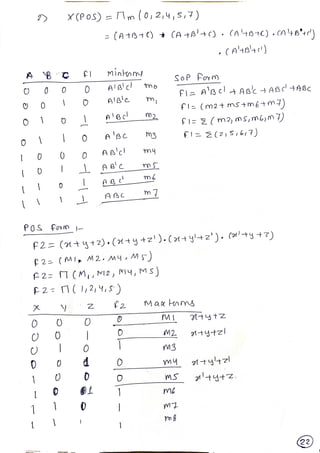 2) X(POS) = Πm (0, 2, 4, 5, 7)
= (A+B+C) • (A+B'+C) • (A'+B+C) • (A'+B+C')
• (A'+B'+C')
A B C F1 Minterms
0 0 0 0 A'B'C' m0
0 0 1 0 A'B'C m1
0 1 0 1 A'BC' m2
0 1 1 0 A'BC m3
1 0 0 0 AB'C' m4
1 0 1 1 AB'C m5
1 1 0 1 ABC' m6
1 1 1 1 ABC m7
SOP Form
F1 = A'BC' + AB'C + ABC' + ABC
F1 = (m2 + m5 + m6 + m7)
F1 = Σ (m2, m5, m6, m7)
F1 = Σ (2, 5, 6, 7)
POS Form :-
F2 = (x+y+z) • (x+y+z') • (x+y'+z') • (x'+y+z)
F2 = (M1 • M2 • M4 • M5)
F2 = Π (M1, M2, M4, M5)
F2 = Π (1, 2, 4, 5)
X Y Z F2 Maxterms
0 0 0 0 M1 x+y+z
0 0 1 0 M2 x+y+z'
0 1 0 1 m3
0 0 1 0 m4 x+y'+z'
1 0 0 0 m5 x'+y+z
1 0 1 1 m6
1 1 0 1 m7
1 1 1 1 m8
22